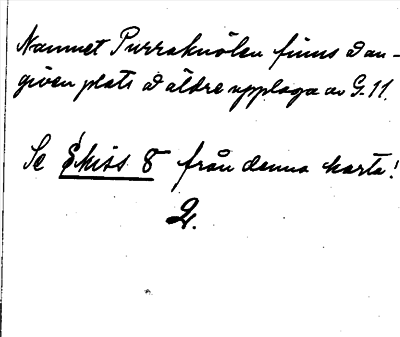 Namnet Purraknölen finns å an-
given plats å äldre upplaga av G-11.
Se Skiss 8 från denna karta!
2.